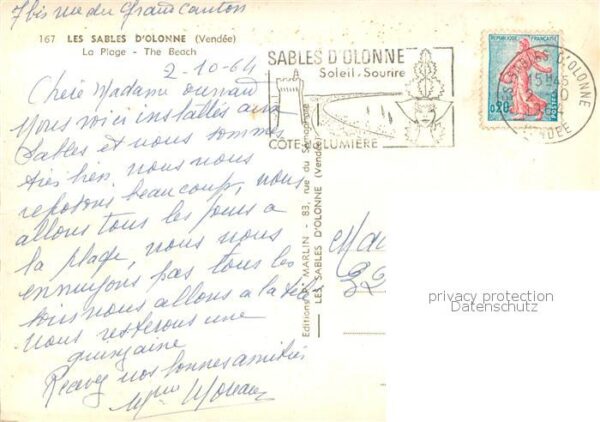 7 bis rue du Grand Canton
167 LES SABLES D'OLONNE (Vendée)
La Plage - The Beach
2-10-64
Chère Madame
Nous voici installés aux
Sables et nous sommes
très bien, nous nous
reposons beaucoup, nous
allons tous les jours a
la plage, nous nous
ennuyons pas tous les
soirs nous allons a la télé
Nous resterons une
quinzaine
Recevez nos bonnes amitiés
Mme Moreau
SABLES D'OLONNE
Soleil-Sourire
CÔTE DE LUMIÈRE
REPUBLIQUE FRANÇAISE
0,20
POSTES
D'OLONNE
15H45
VENDEE
Editions P. MARLIN - 83, rue du Sémaphore
LES SABLES D'OLONNE (Vendée)
privacy protection
Datenschutz